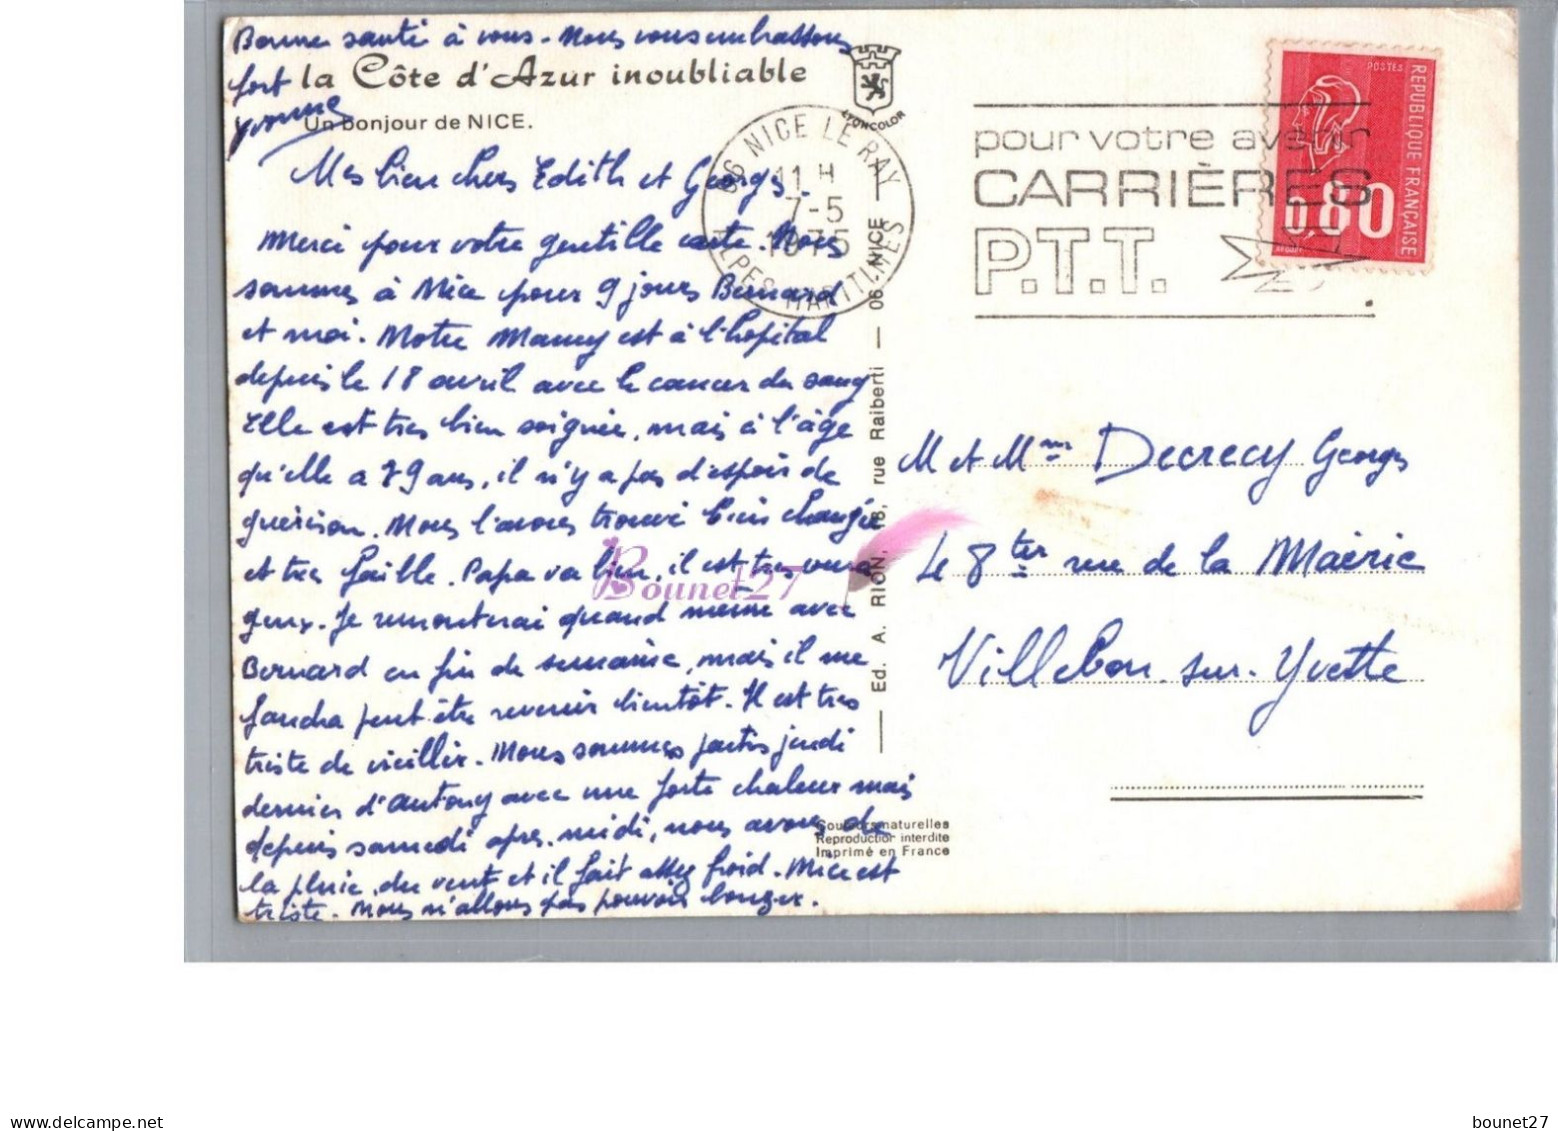 Bonne santé à vous - Nous vous embrassons
fort
Yvonne
la Côte d'Azur inoubliable
Un bonjour de NICE.
LYONCOLOR
Mes bien chers Edith et Georges.
Merci pour votre gentille carte. Nous
sommes à Nice pour 9 jours Bernard
et moi. Notre Mamy est à l'hôpital
depuis le 18 avril avec le cancer du sang
Elle est très bien soignée, mais à l'âge
qu'elle a 79 ans, il n'y a pas d'espoir de
guérison. Nous l'avons trouvé bien changée
et très faible. Papa va bien, il est très coura
geux. Je remonterai quand même avec
Bernard en fin de semaine, mais il me
faudra peut-être revenir bientôt. Il est très
triste de vieillir. Nous sommes partis jeudi
dernier d'Antony avec une forte chaleur mais
depuis samedi après-midi, nous avons de
la pluie, du vent et il fait assez froid. Nice est
triste. Nous n'allons pas pouvoir bouger.
06 NICE LE RAY
11 H
7-5
1975
ALPES MARITIMES
pour votre avenir
CARRIÈRES
P.T.T.
POSTES
REPUBLIQUE FRANÇAISE
0,80
Ed. A. RION, 18, rue Raiberti — 06 - NICE
M et Mme Decrecy Georges
Le 8 ter rue de la Mairie
Villebon-sur-Yvette
Couleurs naturelles
Reproduction interdite
Imprimé en France
Bounet27
www.delcampe.net
bounet27